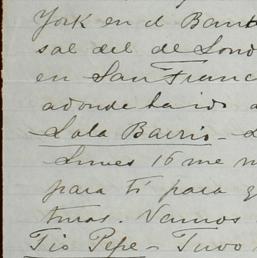 York en el Ban
sal del de Lond
en San Franc
adonde ha ido a
Lola Barrio -
Lunes 16 me m
para tí para q
turas. Vamos
Tio Pepe - Tuvo